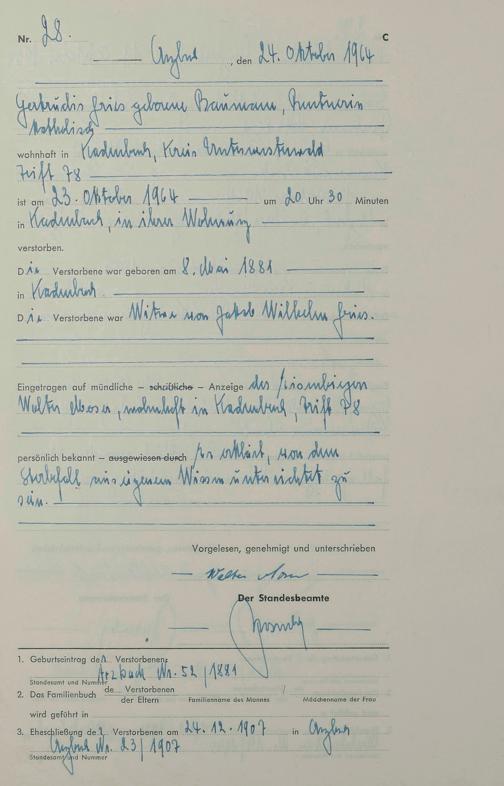 Nr. 28. C
Arzbach , den 24. Oktober 1964
Gertrudis Fries geborene Baumann, Rentnerin
katholisch
wohnhaft in Kadenbach, Kreis Unterwesterwald
Trift 78
ist am 23. Oktober 1964 um 20 Uhr 30 Minuten
in Kadenbach, in ihrer Wohnung
verstorben.
Die Verstorbene war geboren am 8. Mai 1881
in Kadenbach.
Die Verstorbene war Witwe von Jakob Wilhelm Fries.
Eingetragen auf mündliche – schriftliche – Anzeige des
Walter Moser, wohnhaft in Kadenbach, Trift 78
persönlich bekannt – ausgewiesen durch Er erklärt, von dem
Sterbefall aus eigenem Wissen unterrichtet zu
sein.
Vorgelesen, genehmigt und unterschrieben
Walter Moser
Der Standesbeamte
1. Geburtseintrag der Verstorbenen:
Arzbach Nr. 52/1881
Standesamt und Nummer
2. Das Familienbuch de Verstorbenen
der Eltern Familienname des Mannes / Mädchenname der Frau
wird geführt in
3. Eheschließung der Verstorbenen am 24.12.1907 in Arzbach
Arzbach Nr. 23/1907
Standesamt und Nummer